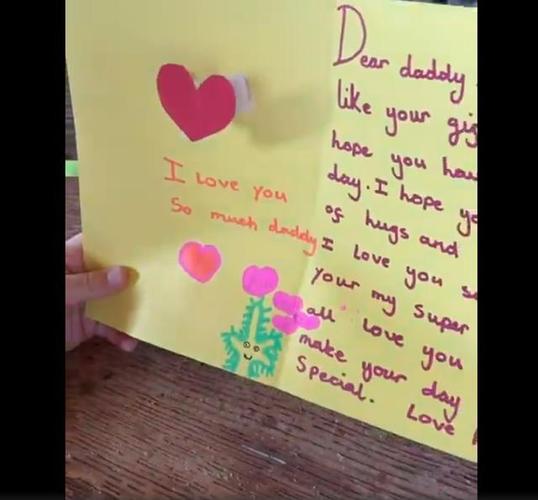 I Love you
So much daddy
Dear daddy
like your
hope you
day. I hope
of hugs and
I love you
your my Super
all love you
make your day
Special. Love